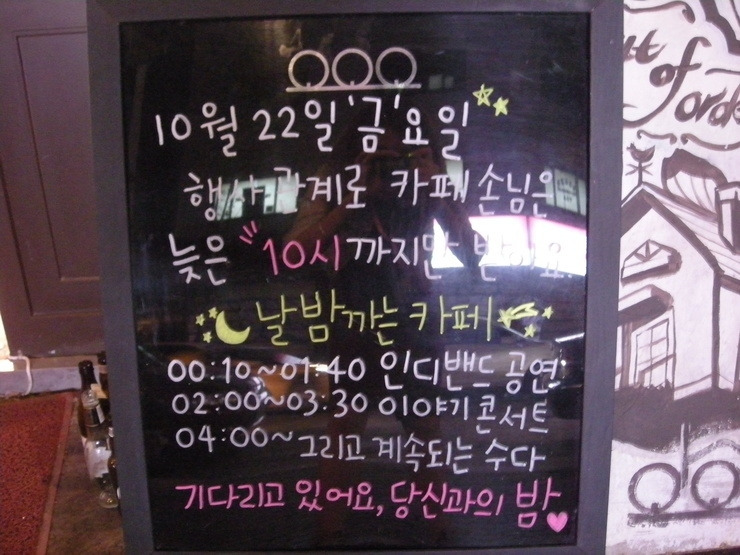 10월 22일 '금'요일
행사 관계로 카페 손님은
늦은 "10시까지만 받아요
날밤까는 카페
00:10~01:40 인디밴드 공연
02:00~03:30 이야기 콘서트
04:00~ 그리고 계속되는 수다
기다리고 있어요, 당신과의 밤
of
orde